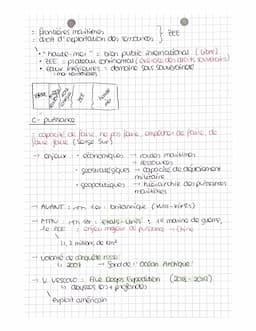 - frontières maritimes
= droit d'exploitation des ressources } ZEE
- "haute-mer" = bien public international (libre)
- ZEE = plateau continental (exercice des droits souverains)
- eaux intérieures = domaine sous souveraineté
mer territoriale
ZEE
C - puissance
= capacité de faire, ne pas faire, empêcher de faire, de
faire faire (Serge Sur)
→ enjeux : • économiques → routes maritimes
→ ressources
• géostratégiques → capacité de déploiement
militaire
• géopolitiques → hiérarchie des puissances
maritimes
→ AVANT : britannique (XVIII-XIXe)
→ MTN : États-Unis : 1e marine de guerre,
1e ZEE = enjeu majeur de puissance → Chine
↳ millions de km²
→ volonté de conquête russe
↳ 2007 → fond de l'Océan Arctique
→ V. VESCOVO : Five Deeps Expedition (2018-2019)
↳ fosses les + profondes
exploit américain